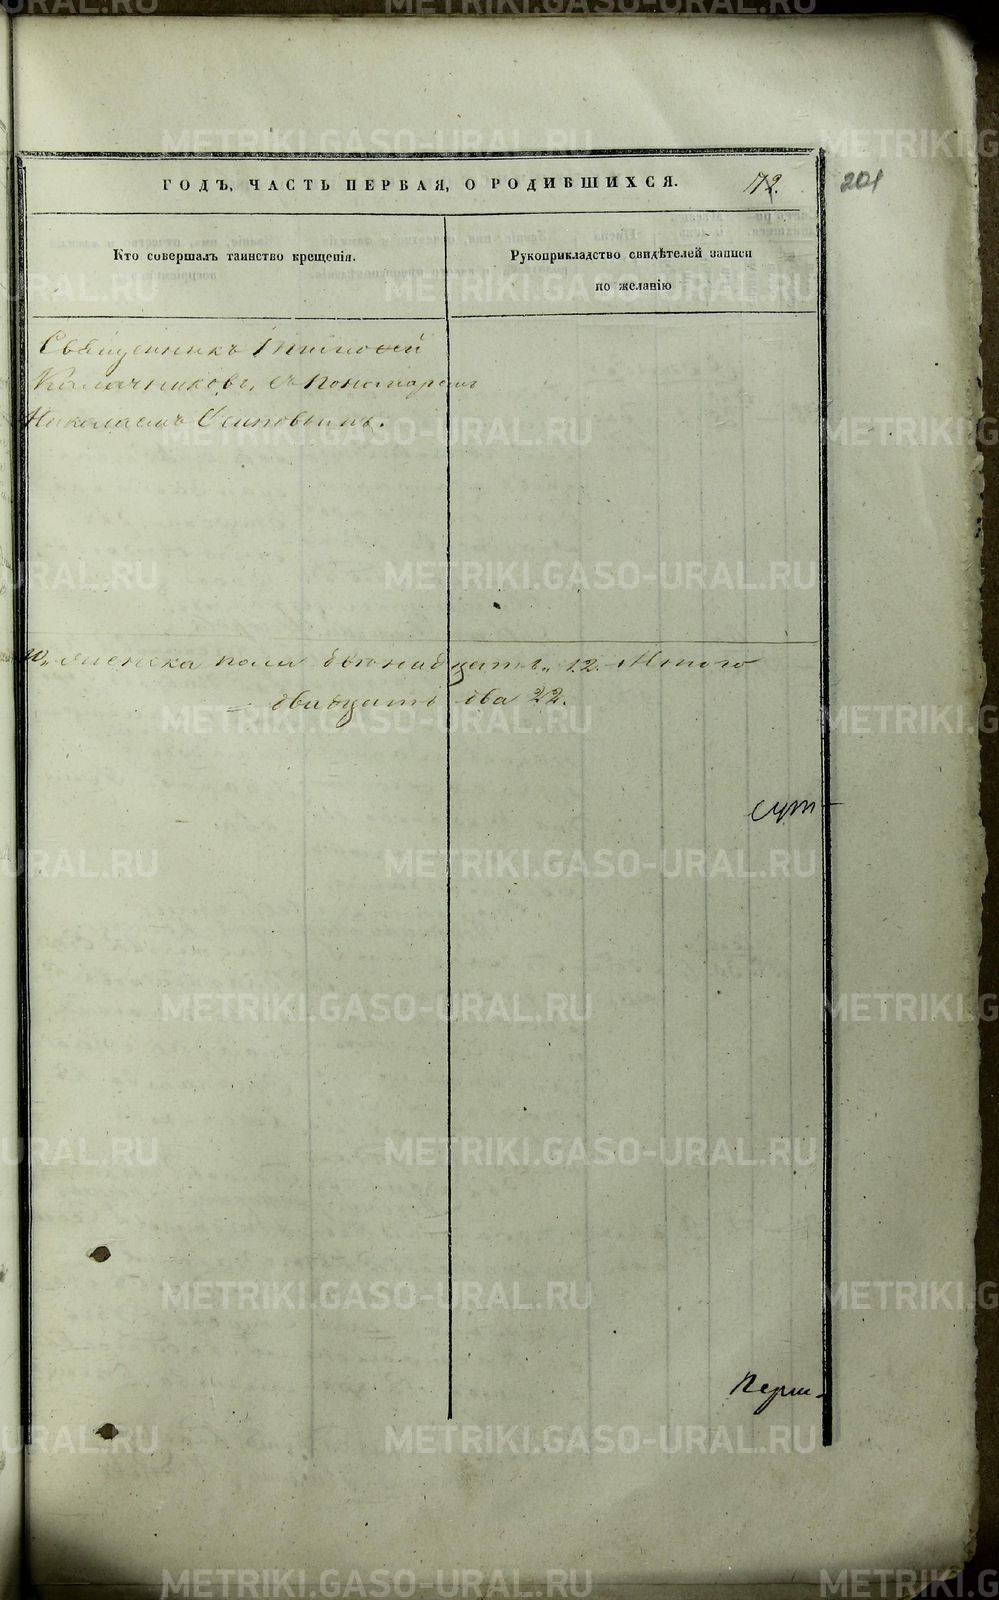 ГОДЪ, ЧАСТЬ ПЕРВАЯ, О РОДИВШИХСЯ.
201
Кто совершалъ таинство крещенія.
Рукоприкладство свидѣтелей записи
по желанію
Священникъ Тимофей
Калачниковъ, съ Пономаремъ
Николаемъ Осиповымъ.
женска пола двѣнадцать 12. Итого
двадцать два 22.
METRIKI.GASO-URAL.RU